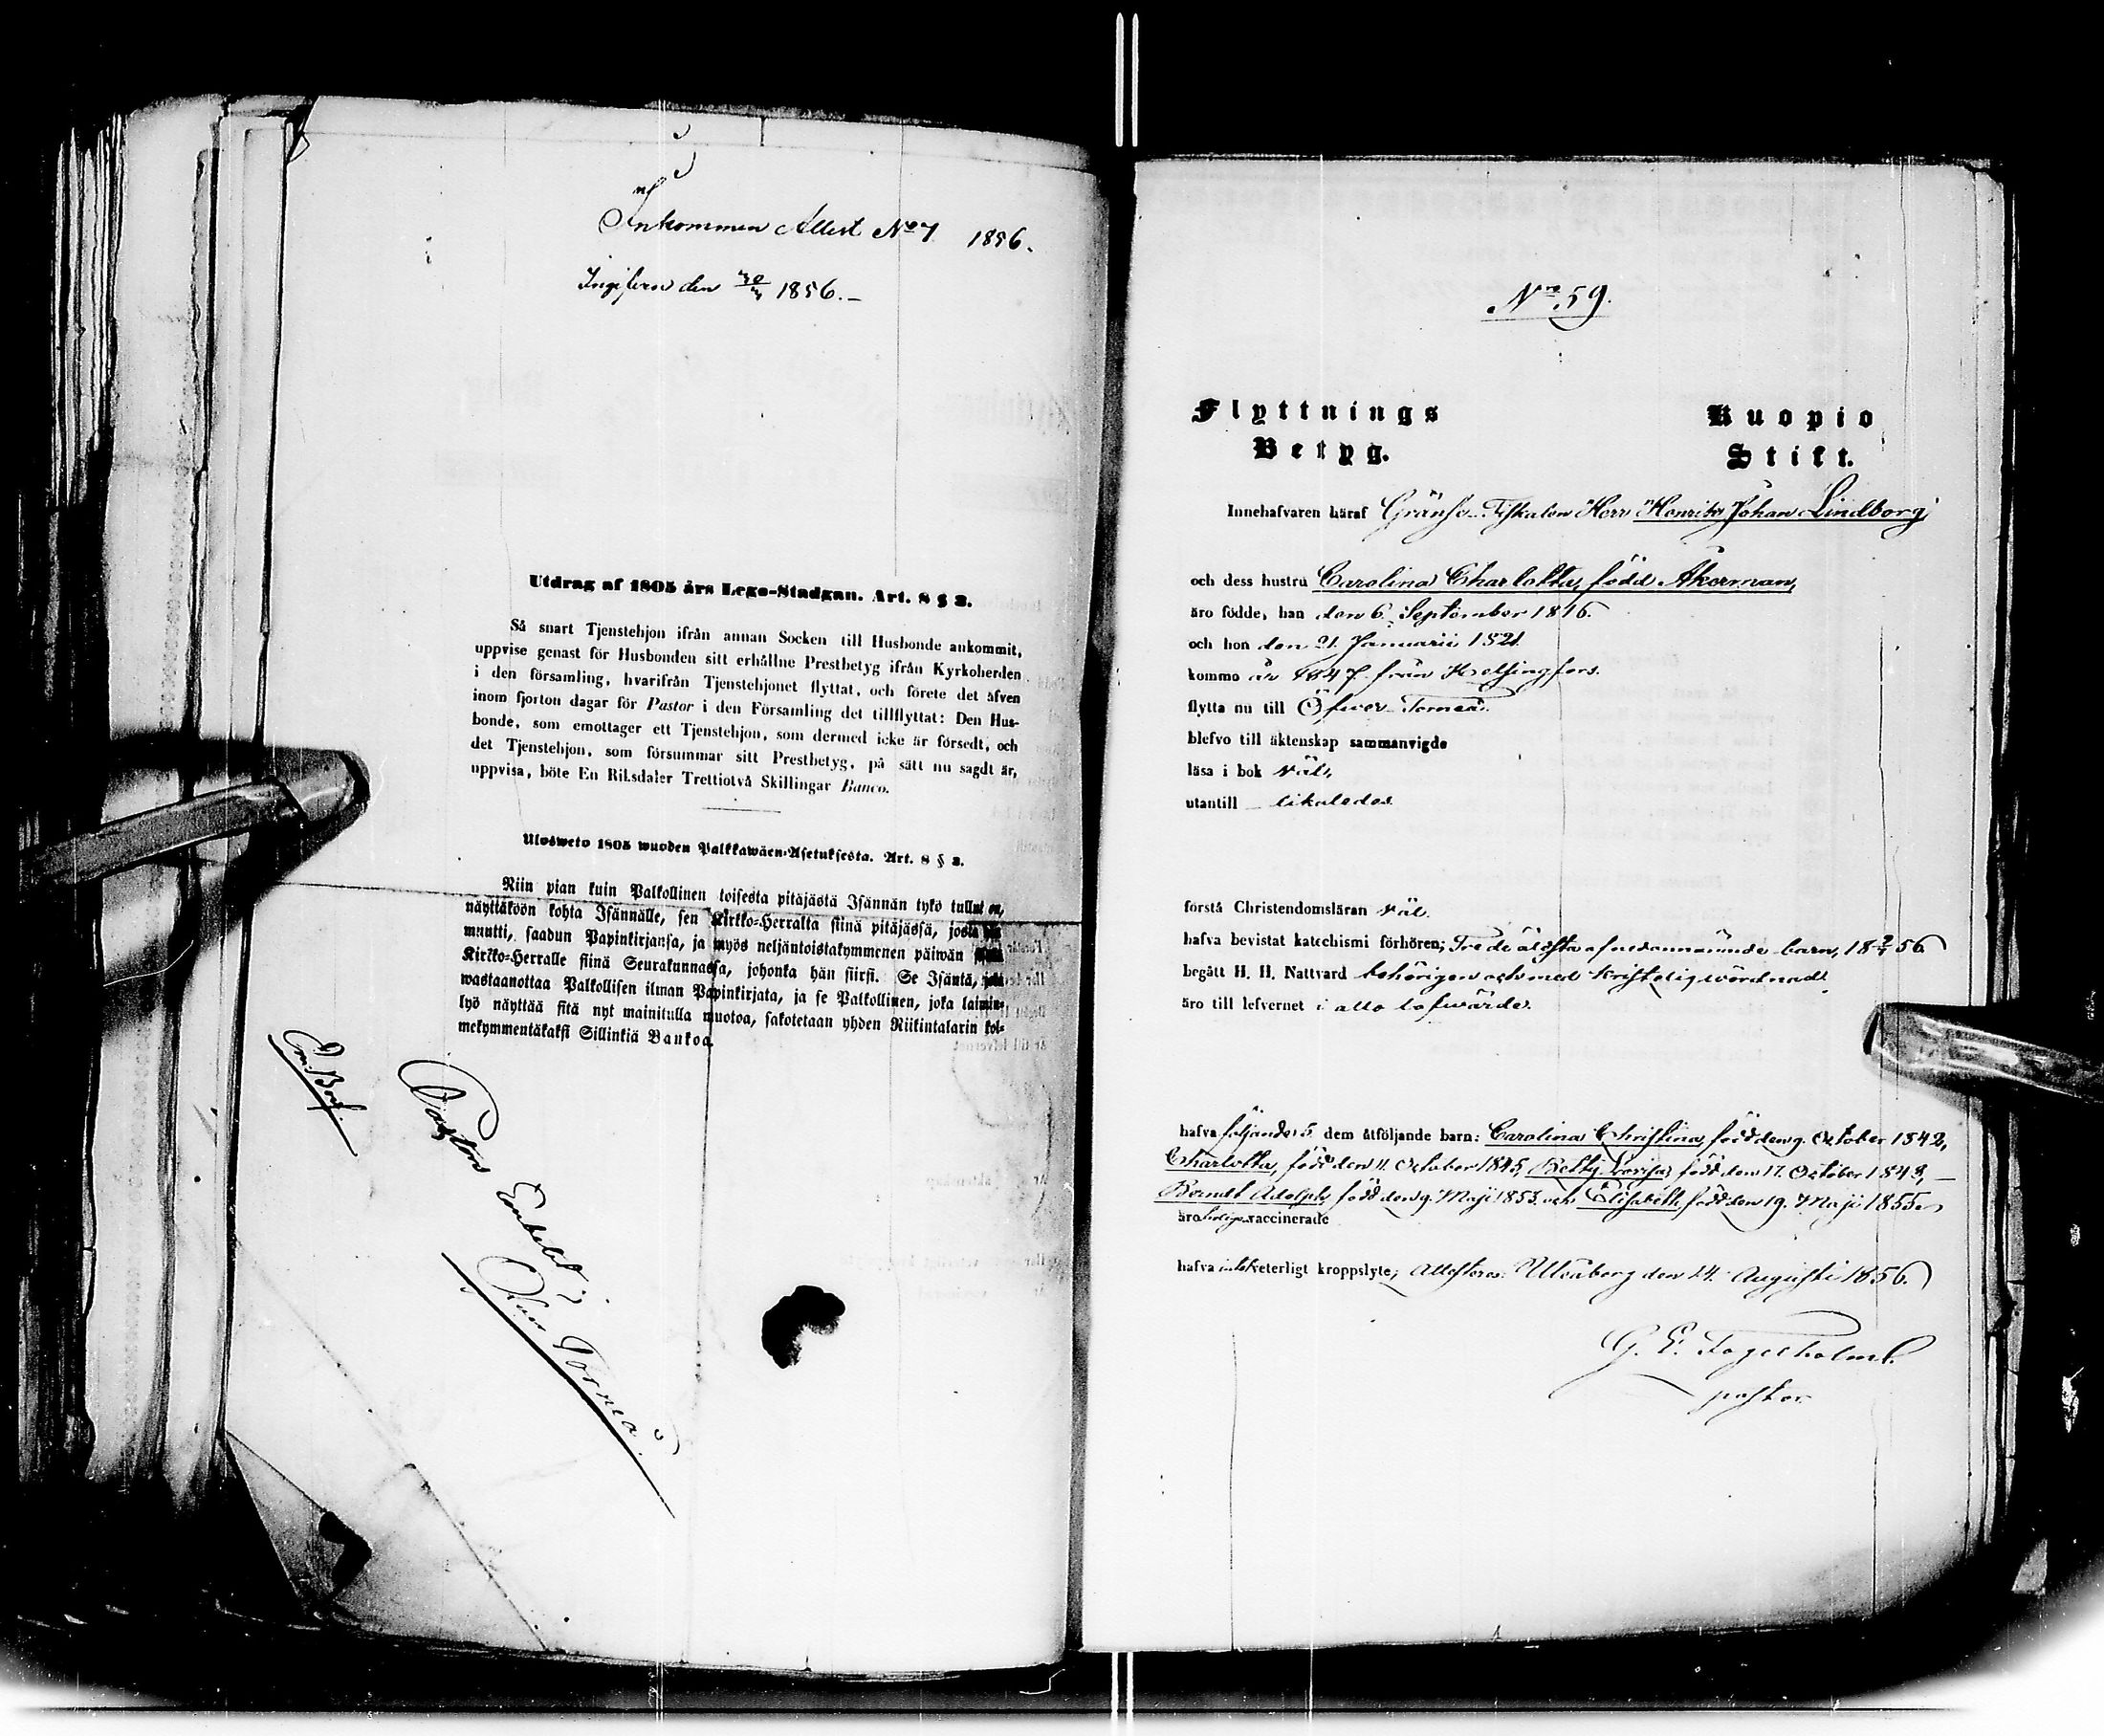 Inkommen Attest No 7 1856.
Ingifven den 30/3 1856.—
Utdrag af 1805 års Lego-Stadgan. Art. 8 § 3.
Så snart Tjenstehjon ifrån annan Socken till Husbonde ankommit,
uppvise genast för Husbonden sitt erhållne Prestbetyg ifrån Kyrkoherden
i den församling, hvarifrån Tjenstehjonet flyttat, och förete det äfven
inom fjorton dagar för Pastor i den Församling det tillflyttat: Den Hus-
bonde, som emottager ett Tjenstehjon, som dermed icke är försedt, och
det Tjenstehjon, som försummar sitt Prestbetyg, på sätt nu sagdt är,
uppvisa, böte En Riksdaler Trettiotvå Skillingar Banco.
Ulosweto 1805 wuoden Palkkawäen-Asetuksesta. Art. 8 § 3.
Niin pian kuin Palkollinen toisesta pitäjästä Isännän tykö tullut on,
näyttäköön kohta Isännälle, sen Kirkko-Herralta siinä pitäjässä, josta
muutti, saadun Papinkirjansa, ja myös neljäntoistakymmenen päiwän
Kirkko-Herralle siinä Seurakunnassa, johonka hän siirsi. Se Isäntä, joka
wastaanottaa Palkollisen ilman Papinkirjata, ja se Palkollinen, joka laimin-
lyö näyttää sitä nyt mainitulla muotoa, sakotetaan yhden Riikintalarin kol-
mekymmentäkaksi Sillinkiä Bankoa.
Pastors Embetet
i
Öfver Torneå.
No 59.
Flyttnings
Betyg.
Kuopio
Stift.
Innehafvaren häraf Gränse-Fiskalen Herr Henrik Johan Lindborg
och dess hustru Carolina Charlotta, född Åkerman,
äro födde, han den 6. September 1816.
och hon den 21. Januarii 1821.
kommo år 1847 från Helsingfors.
flytta nu till Öfver-Torneå.
blefvo till äktenskap sammanvigde
läsa i bok väl,
utantill likaledes.
förstå Christendomsläran väl.
hafva bevistat katechismi förhören; Tre de äldsta af nedannämnde barn, 18 56
begått H. H. Nattvard behörigen och med kristelig wördnad.
äro till lefvernet i allo lofwärde.
hafva följande 5 dem åtföljande barn: Carolina Christina, född den 9. October 1842,
Charlotta, född den 11. October 1845, Betty Lovisa, född den 17. October 1848,
Berndt Adolph, född den 9. Maji 1853. och Elisabeth, född den 19. Maji 1855.
äro vaccinerade
hafva intet veterligt kroppslyte; Attesteras. Uleåborg den 14. Augusti 1856.
G. E. Fogelholm.
pastor.